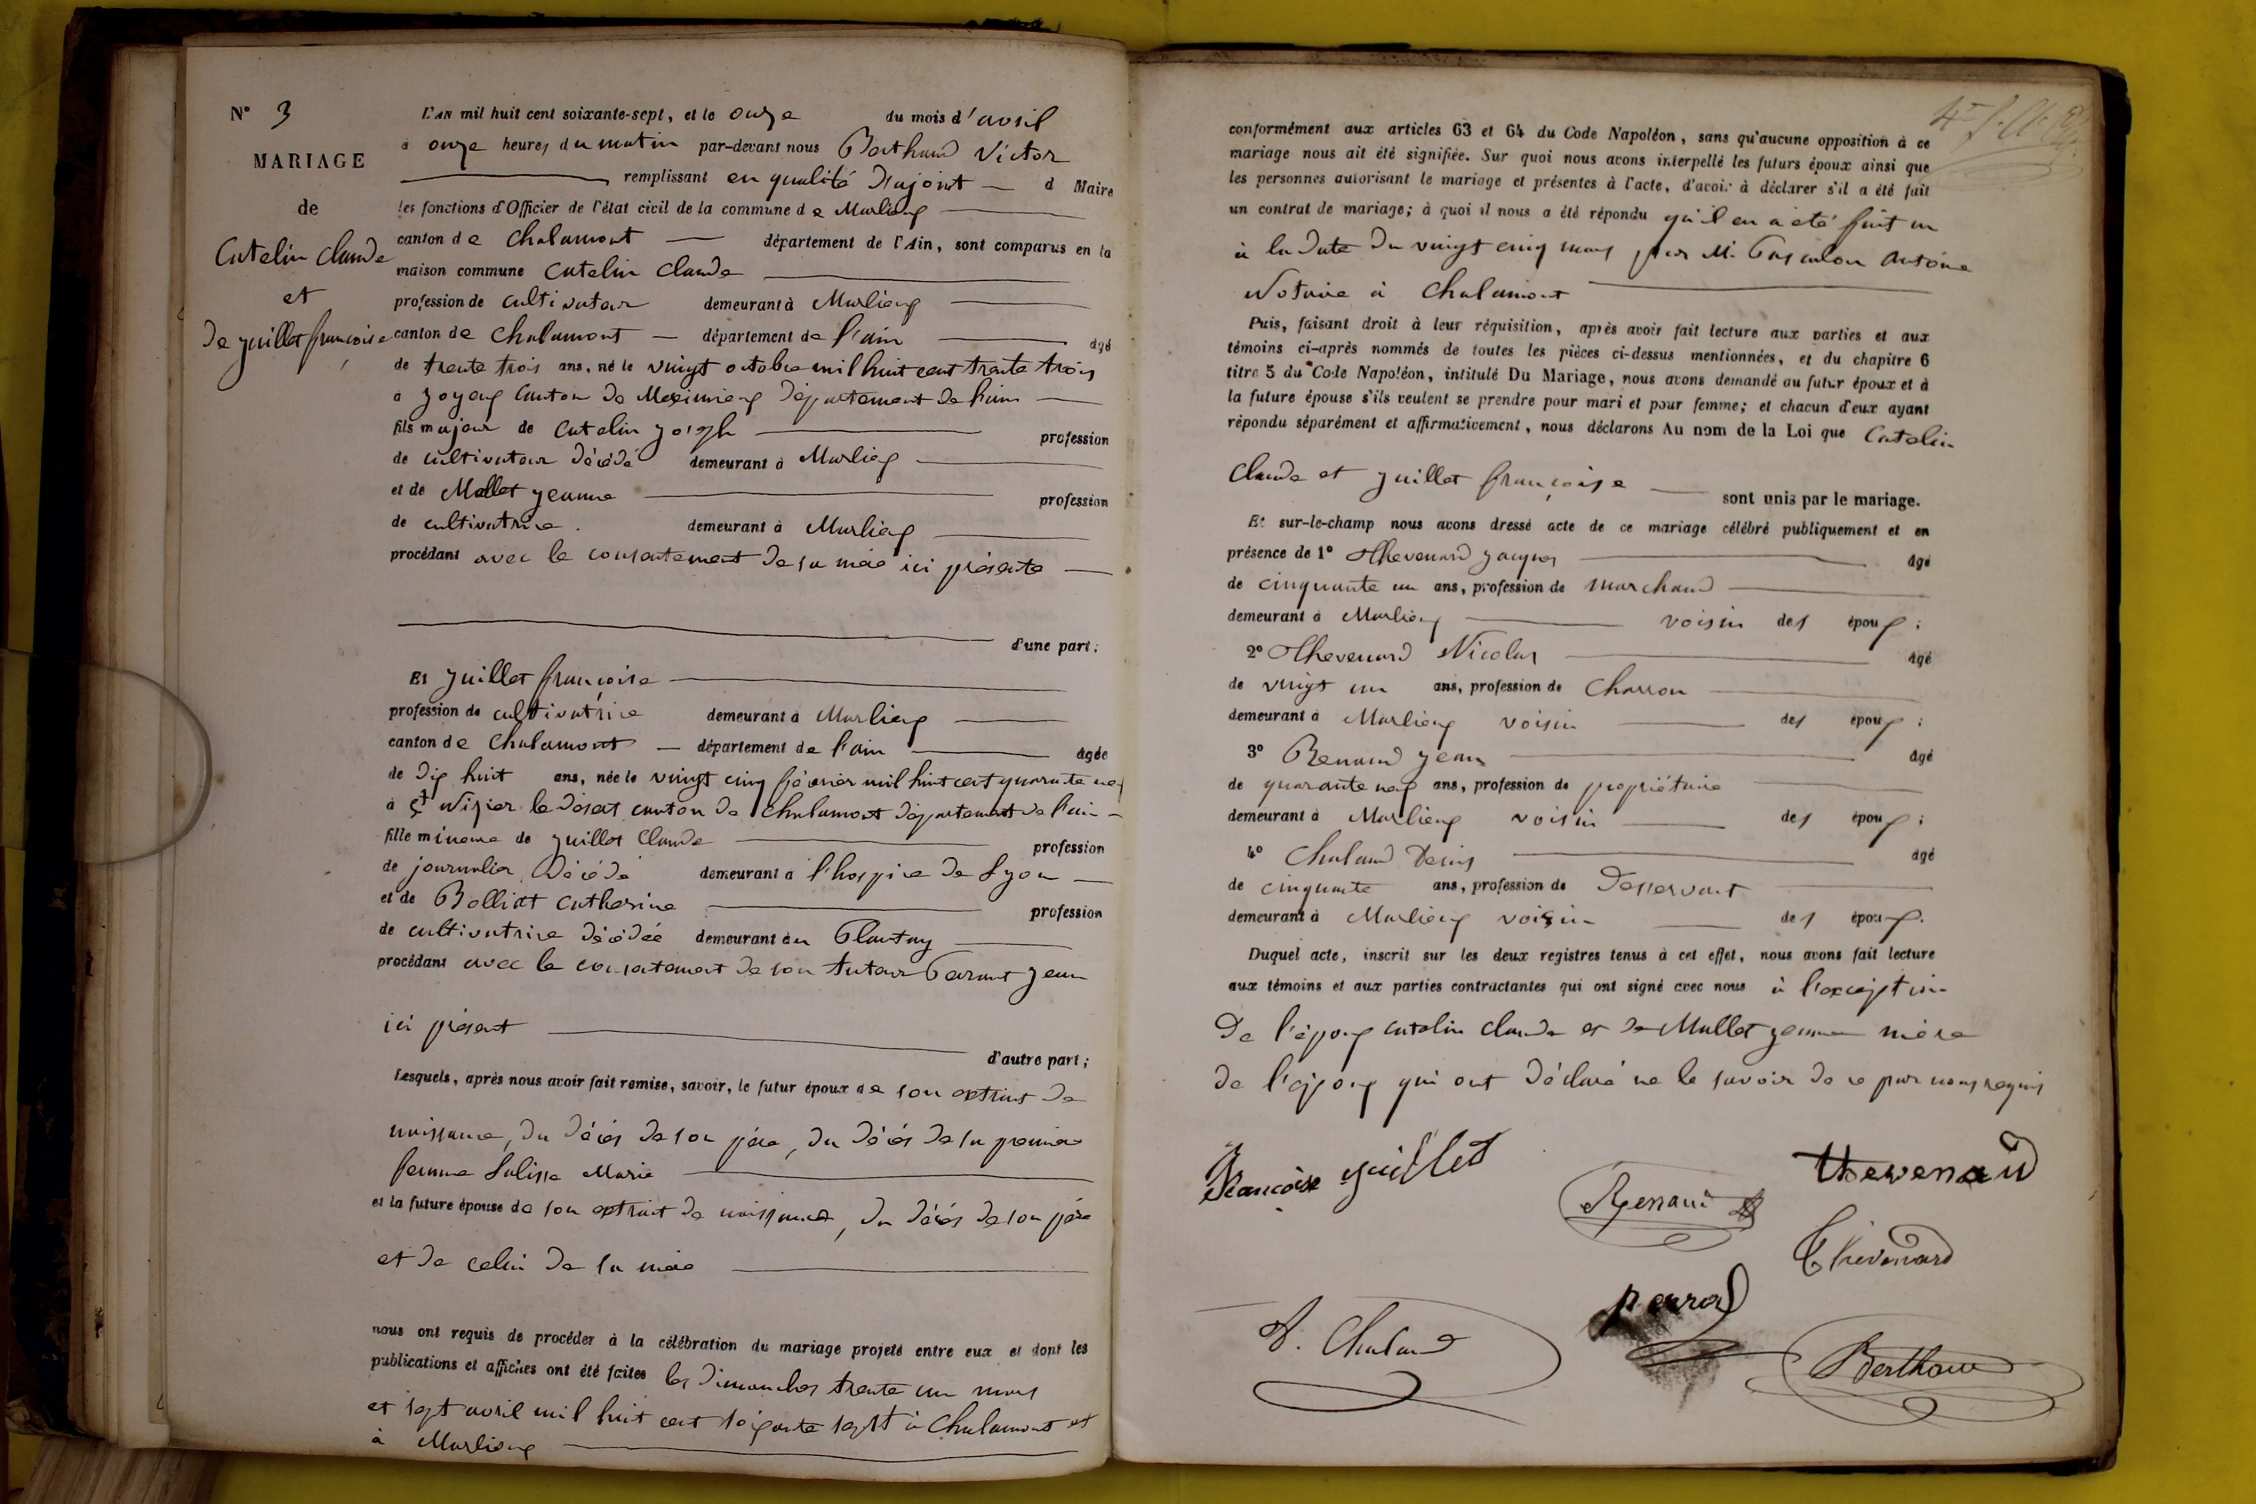 N° 3
MARIAGE
de
Catelin Claude
et
de juillet françoise
L'AN mil huit cent soixante-sept, et le onze du mois d'avril
à onze heures du matin par-devant nous Berthaud Victor
remplissant en qualité d'ajoint d Maire
les fonctions d'Officier de l'état civil de la commune de Marlieux
canton de Chalamont département de l'Ain, sont comparus en la
maison commune Catelin Claude
profession de cultivateur demeurant à Marlieux
canton de Chalamont département de l'ain âgé
de trente trois ans, né le vingt octobre mil huit cent trente trois
à Joyeux Canton de Meximieux département de l'ain
fils majeur de Catelin joseph profession
de cultivateur décédé demeurant à Marlieux
et de Mallet jeanne profession
de cultivatrice. demeurant à Marlieux
procédant avec le consentement de sa mère ici présente
d'une part;
Et juillet françoise
profession de cultivatrice demeurant à Marlieux
canton de Chalamont département de l'ain âgée
de dix huit ans, née le vingt cinq février mil huit cent quarante neuf
à St Nizier le désert canton de Chalamont département de l'ain
fille mineure de juillet Claude profession
de journalier décédé demeurant à l'hospice de Lyon
et de Bolliat Catherine profession
de cultivatrice décédée demeurant au Plantay
procédant avec le consentement de son tuteur jean
ici présent
d'autre part;
Lesquels, après nous avoir fait remise, savoir, le futur époux de son extrait de
naissance, du décès de son père, du décès de sa première
femme Marie
et la future épouse de son extrait de naissance, du décès de son père
et de celui de sa mère
nous ont requis de procéder à la célébration du mariage projeté entre eux et dont les
publications et affiches ont été faites les dimanches trente un mars
et sept avril mil huit cent soixante sept à Chalamont et
à Marlieux
conformément aux articles 63 et 64 du Code Napoléon, sans qu'aucune opposition à ce
mariage nous ait été signifiée. Sur quoi nous avons interpellé les futurs époux ainsi que
les personnes autorisant le mariage et présentes à l'acte, d'avoir à déclarer s'il a été fait
un contrat de mariage; à quoi il nous a été répondu qu'il en a été fait un
à la date du vingt cinq mars par M. Antoine
Notaire à Chalamont
Puis, faisant droit à leur réquisition, après avoir fait lecture aux parties et aux
témoins ci-après nommés de toutes les pièces ci-dessus mentionnées, et du chapitre 6
titre 5 du Code Napoléon, intitulé Du Mariage, nous avons demandé au futur époux et à
la future épouse s'ils veulent se prendre pour mari et pour femme; et chacun d'eux ayant
répondu séparément et affirmativement, nous déclarons Au nom de la Loi que Catelin
Claude et juillet françoise sont unis par le mariage.
Et sur-le-champ nous avons dressé acte de ce mariage célébré publiquement et en
présence de 1° Thevenard jacques âgé
de cinquante un ans, profession de marchand
demeurant à Marlieux voisin des époux;
2° Thevenard Nicolas âgé
de vingt un ans, profession de Charron
demeurant à Marlieux voisin des époux;
3° Renaud jean âgé
de quarante neuf ans, profession de propriétaire
demeurant à Marlieux voisin des époux;
4° Chaland Denis âgé
de cinquante ans, profession de Desservant
demeurant à Marlieux voisin des époux.
Duquel acte, inscrit sur les deux registres tenus à cet effet, nous avons fait lecture
aux témoins et aux parties contractantes qui ont signé avec nous à l'exception
de l'époux Catelin Claude et de Mallet jeanne mère
de l'époux qui ont déclaré ne le savoir de ce par nous requis
Françoise juillet
Renaud
thevenard
Thevenard
D. Chaland
Berthaud